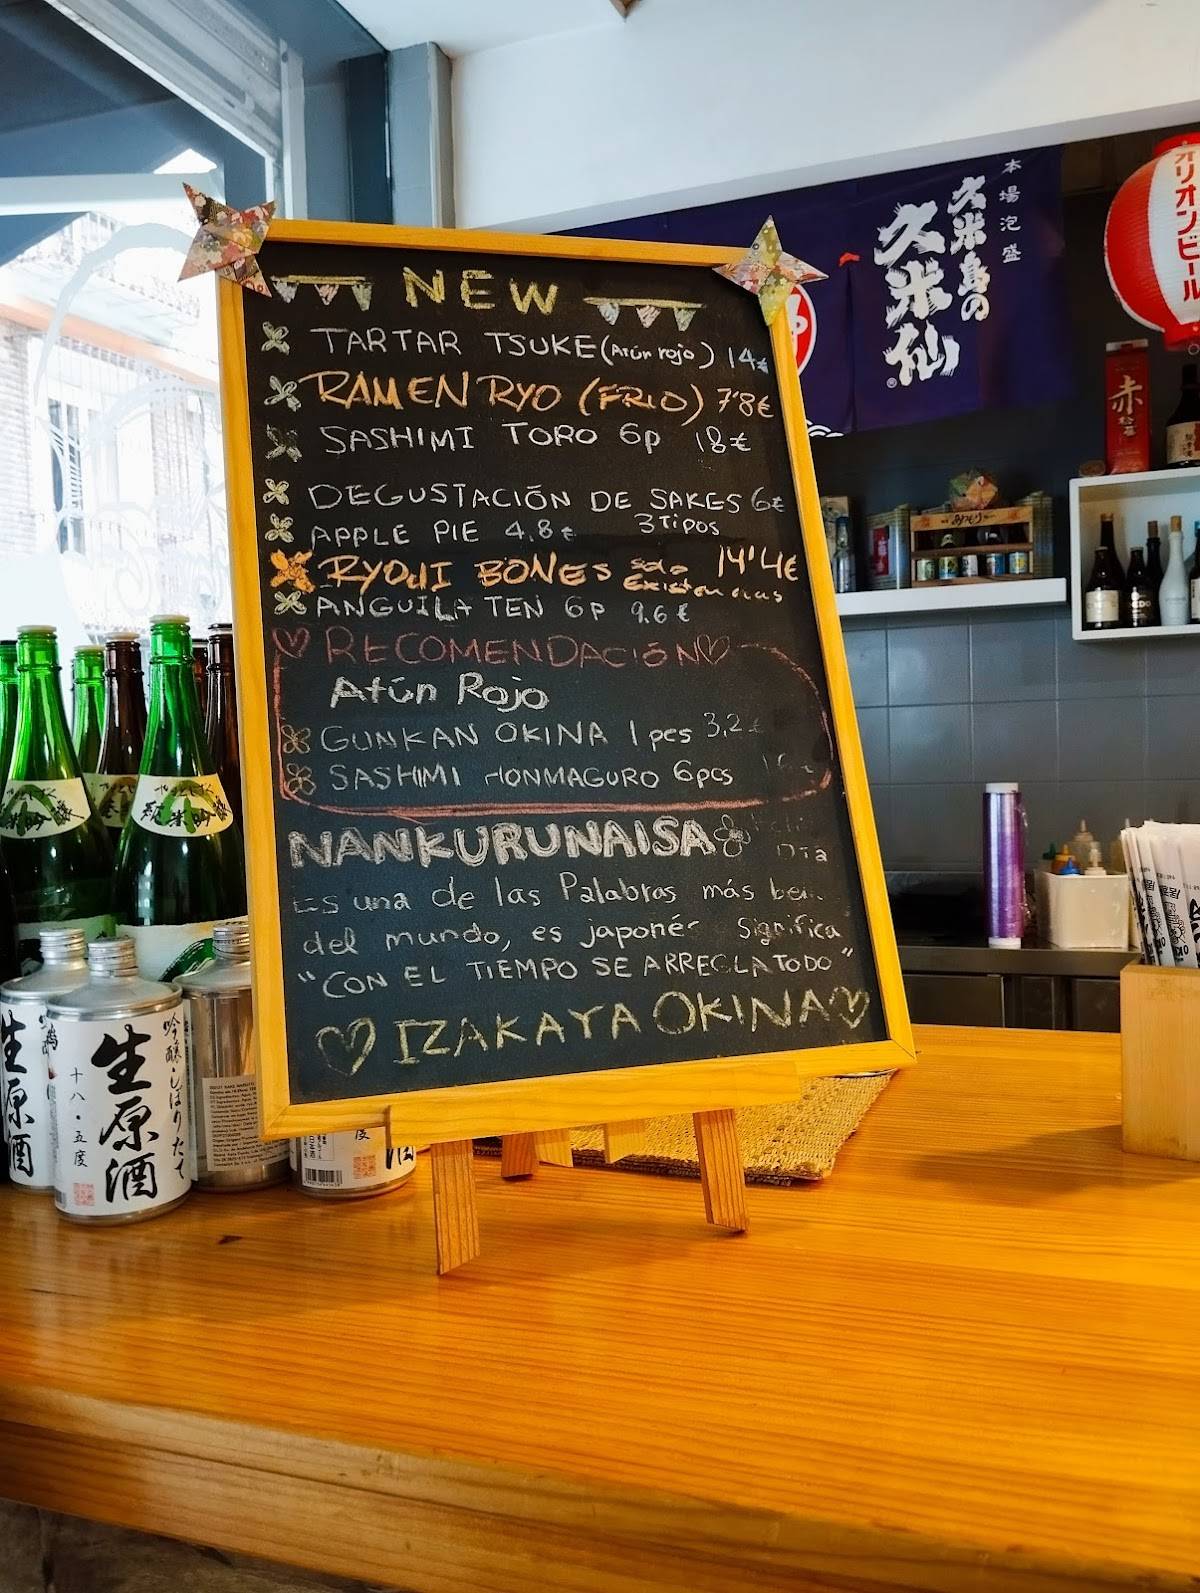 NEW
TARTAR TSUKE (Atún rojo) 14€
RAMEN RYO (FRIO) 7'8€
SASHIMI TORO 6p 18€
DEGUSTACIÓN DE SAKES 6€
3 Tipos
APPLE PIE 4,8€
RYOJI BONES solo Existencias 14'4€
ANGUILA TEN 6p 9,6€
RECOMENDACIÓN
Atún Rojo
GUNKAN OKINA 1 pes 3,2€
SASHIMI HONMAGURO 6pcs
NANKURUNAISA
Es una de las Palabras más
del mundo, es japonés significa
"CON EL TIEMPO SE ARREGLA TODO"
IZAKAYA OKINA
本場泡盛
久米島の
久米仙
オリオンビール
赤
純米吟醸
生原酒
吟醸・しぼりたて
十八・五度